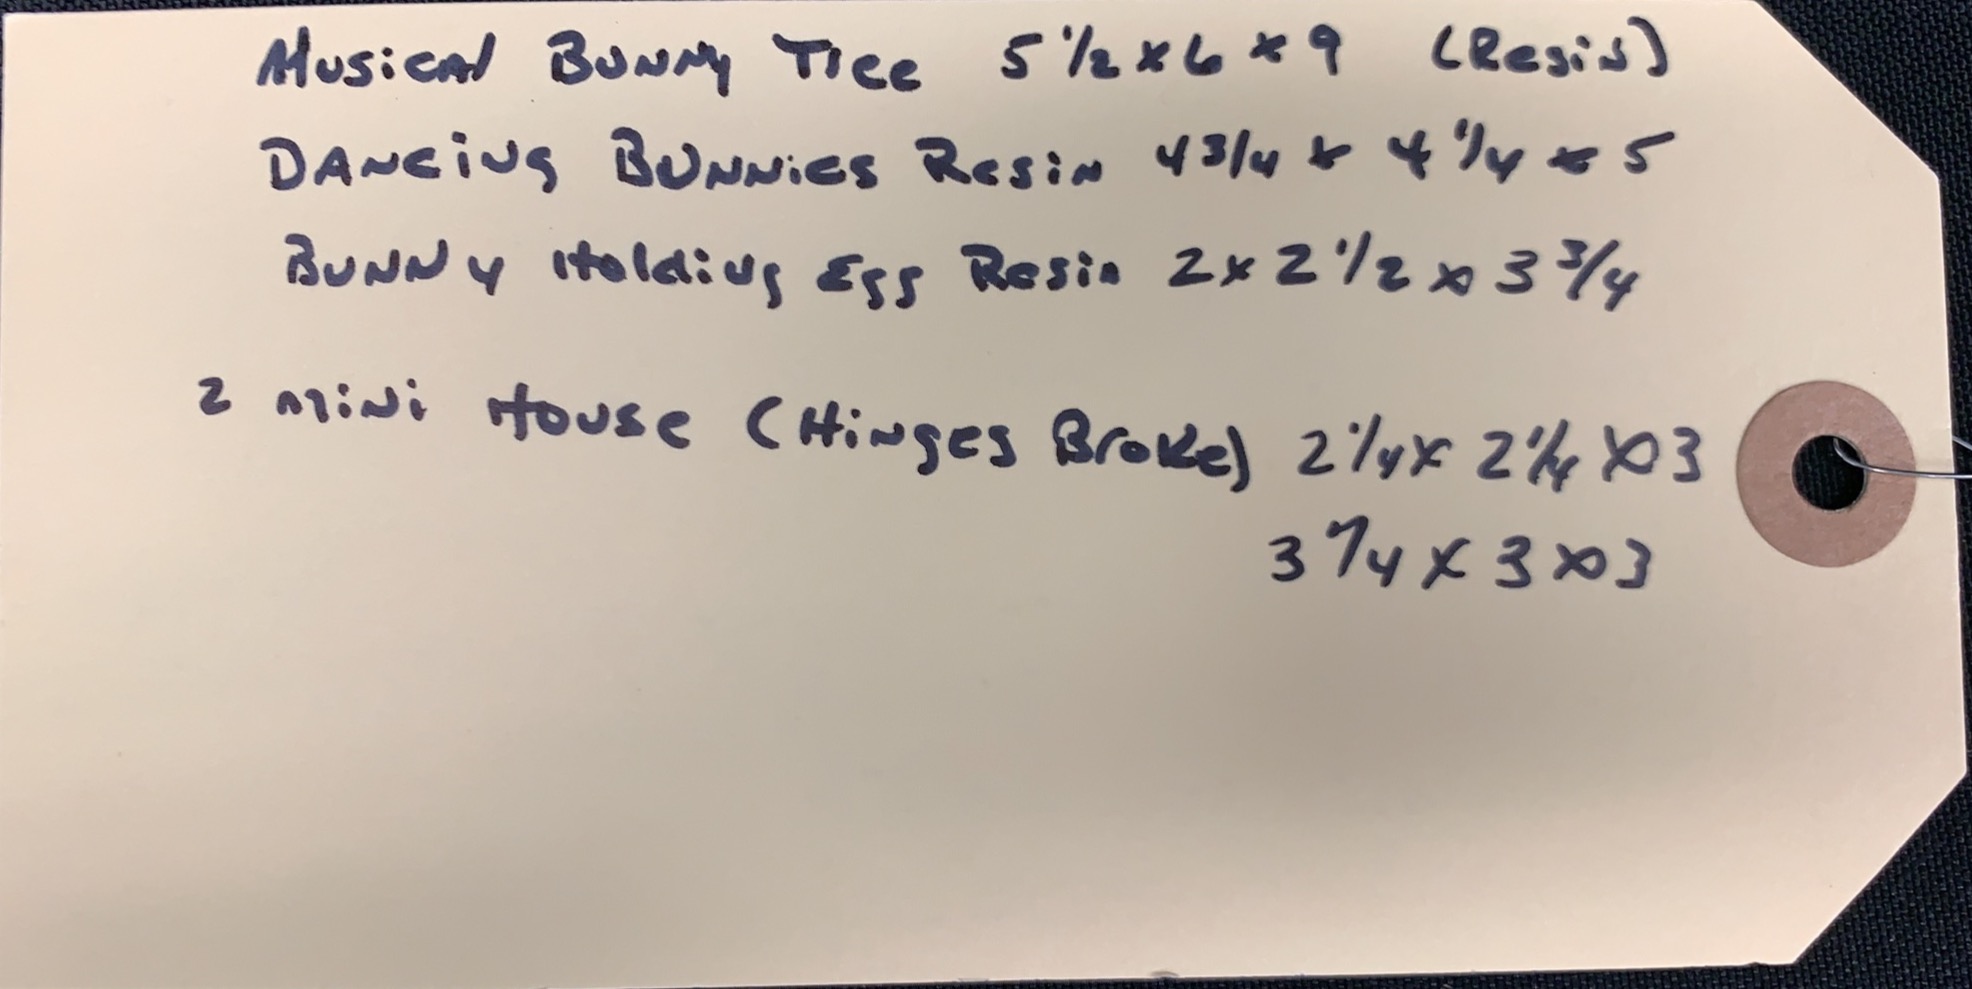 Musical Bunny Tree 5 1/2 x 6 x 9 (Resin)
DANCING BUNNIES Resin 4 3/4 x 4 1/4 x 5
BUNNY Holding Egg Resin 2 x 2 1/2 x 3 3/4
2 mini House (Hinges Broke) 2 1/4 x 2 1/4 x 3
3 1/4 x 3 x 3